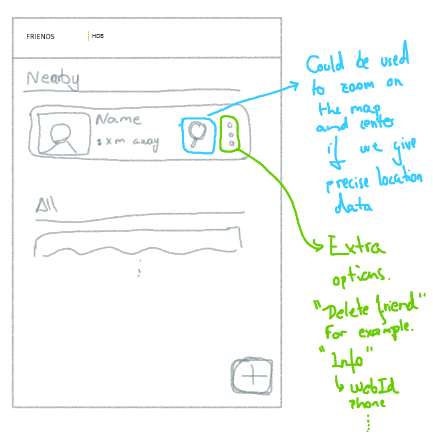 FRIENDS HOB
Nearby
Name
s x m away
All
Could be used
to zoom on
the map
and center
if we give
precise location
data
Extra
options.
"Delete friend"
For example.
"Info"
WebId
phone